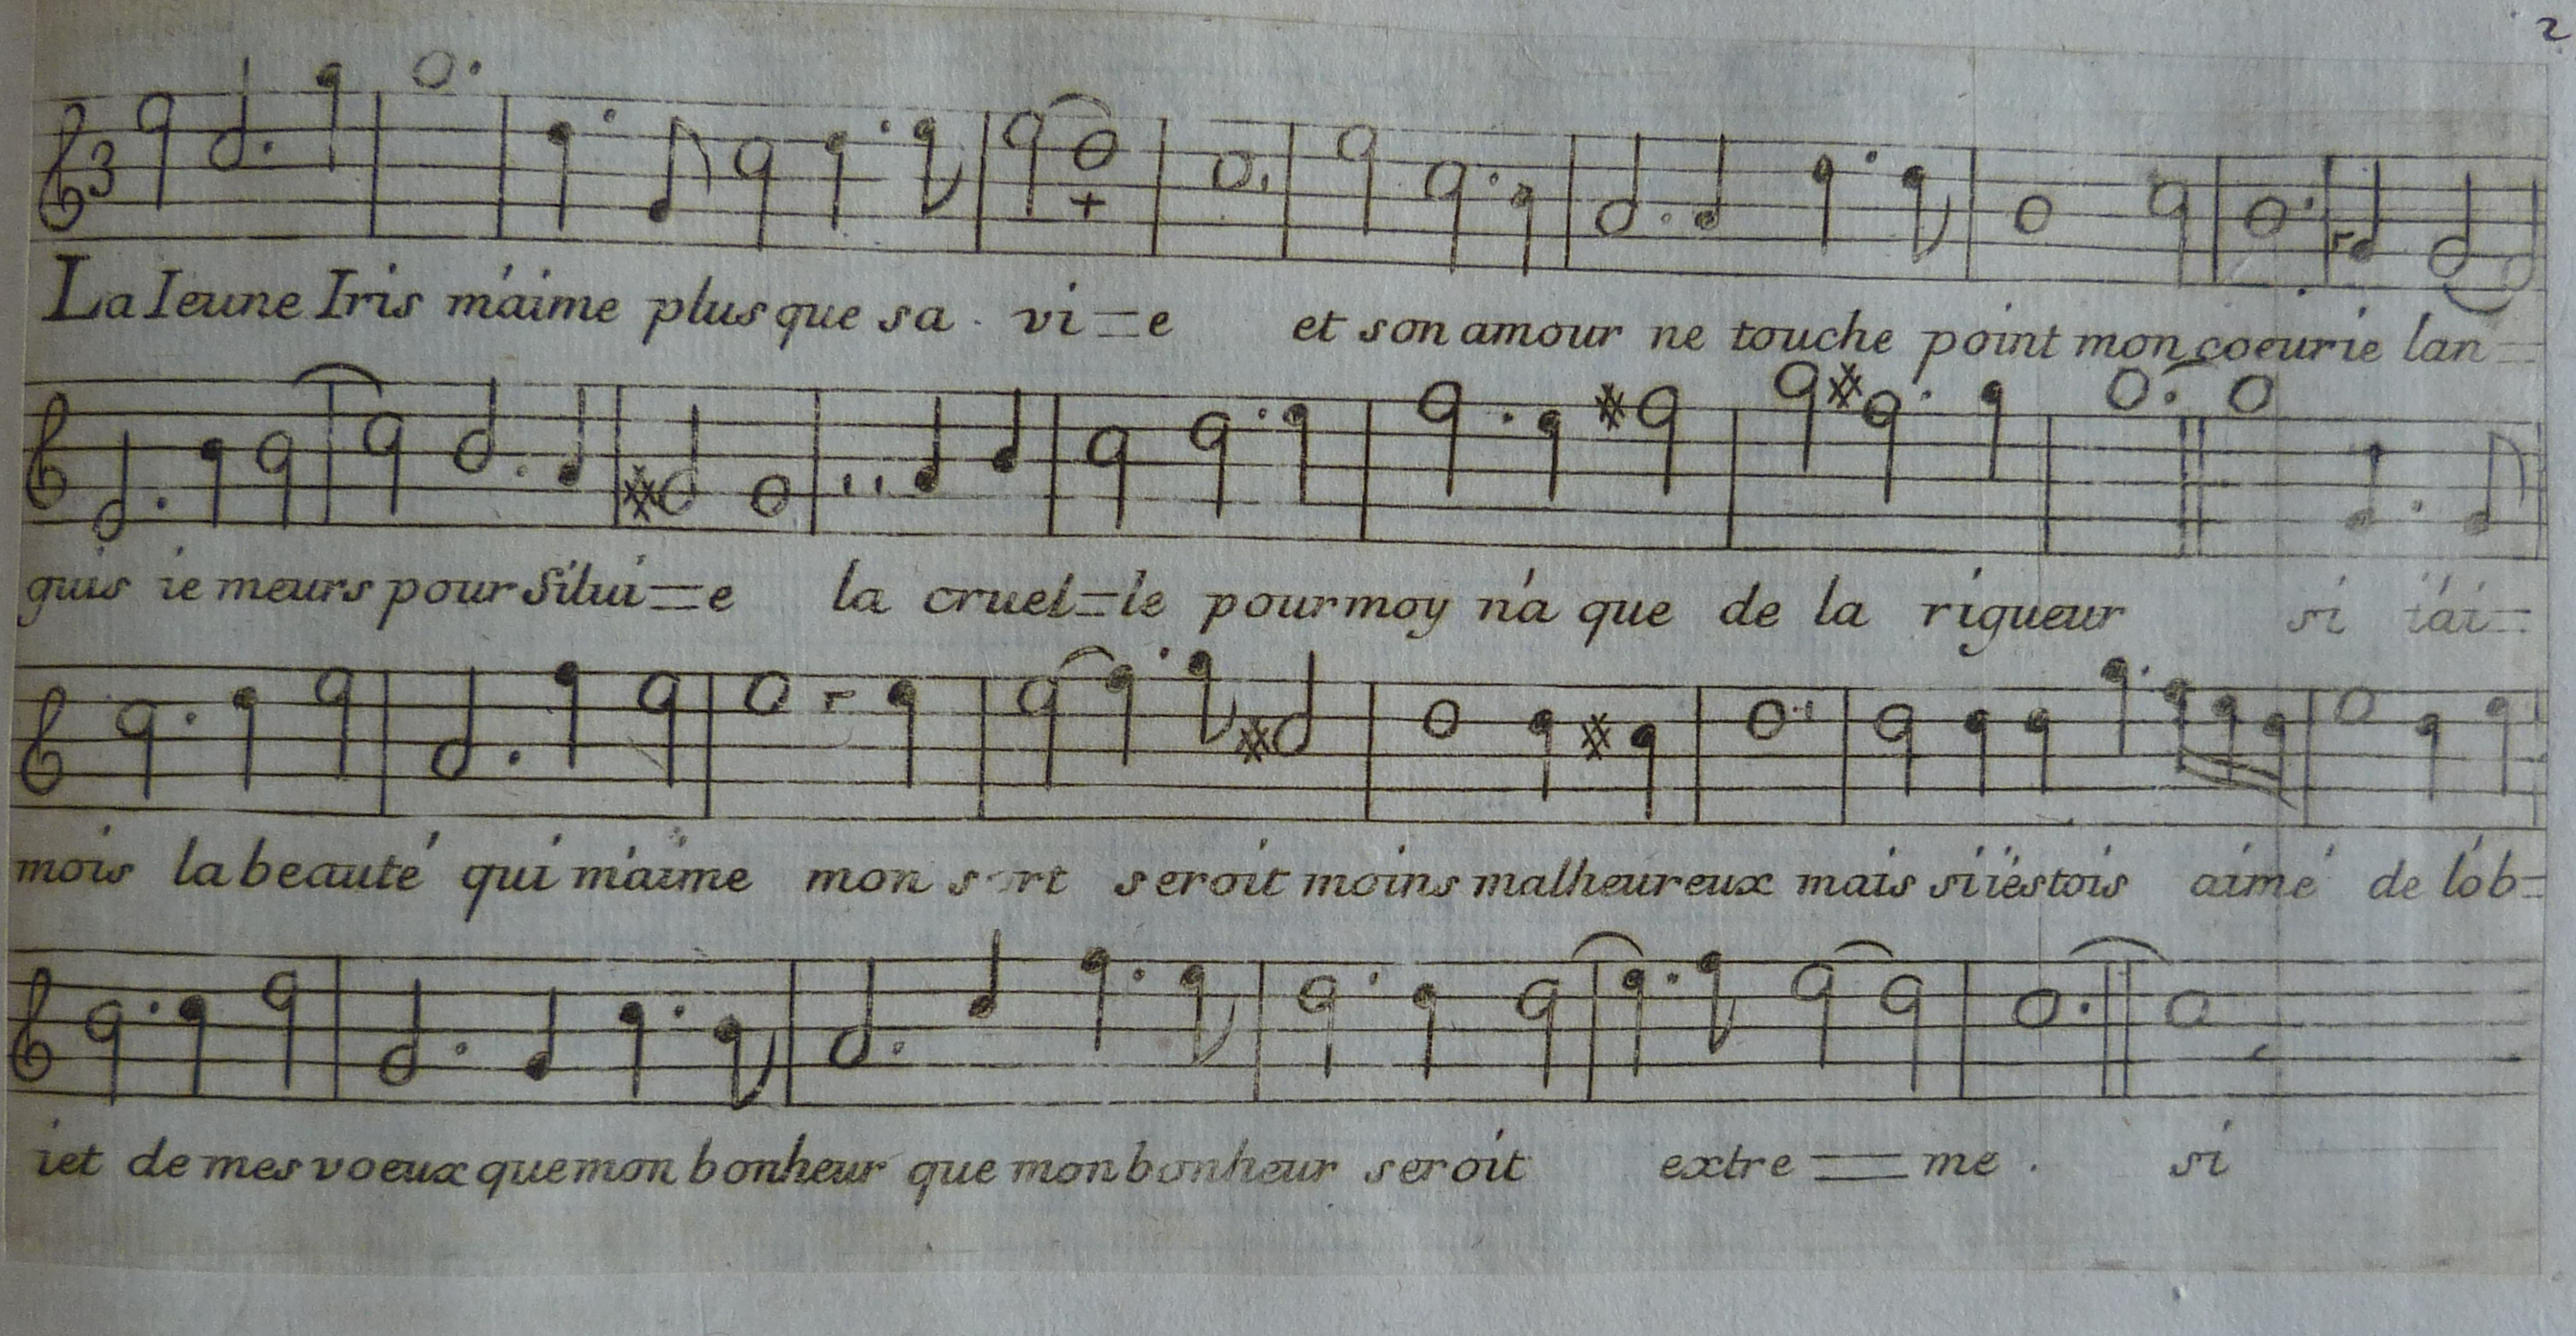 2
3
La Ieune Iris m'aime plus que sa vi=e et son amour ne touche point mon coeur ie lan=
guis ie meurs pour Silui=e la cruel=le pour moy n'a que de la rigueur si i'ai=
mois la beauté qui m'aime mon sort seroit moins malheureux mais si i'estois aimé de l'ob=
iet de mes voeux que mon bonheur que mon bonheur seroit extre=me. si